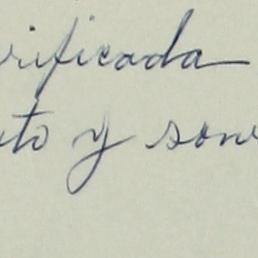 rificada
to y son